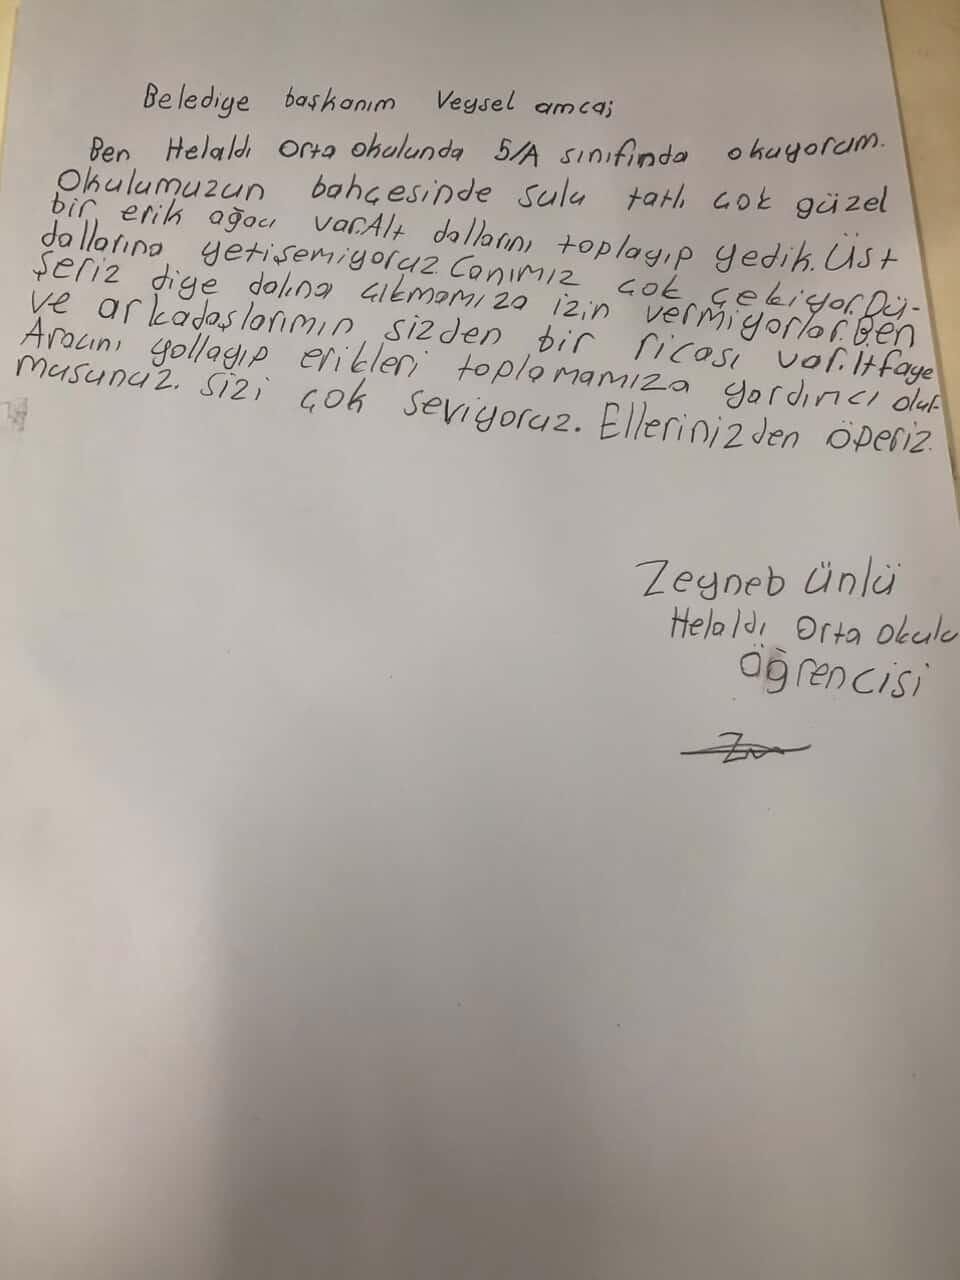 Belediye başkanım Veysel amca;
Ben Helaldı Orta okulunda 5/A sınıfında okuyorum.
Okulumuzun bahçesinde sulu tatlı çok güzel
bir erik ağacı var.Alt dallarını toplayıp yedik. Üst
dallarına yetişemiyoruz. Canımız çok çekiyor. Dü-
şeriz diye dalına çıkmamıza izin vermiyorlar. Ben
ve arkadaşlarımın sizden bir ricası var. İtfaye
Aracını yollayıp erikleri toplamamıza yardımcı olur
musunuz. Sizi çok seviyoruz. Ellerinizden öperiz.
Zeyneb Ünlü
Helaldı Orta okulu
Öğrencisi